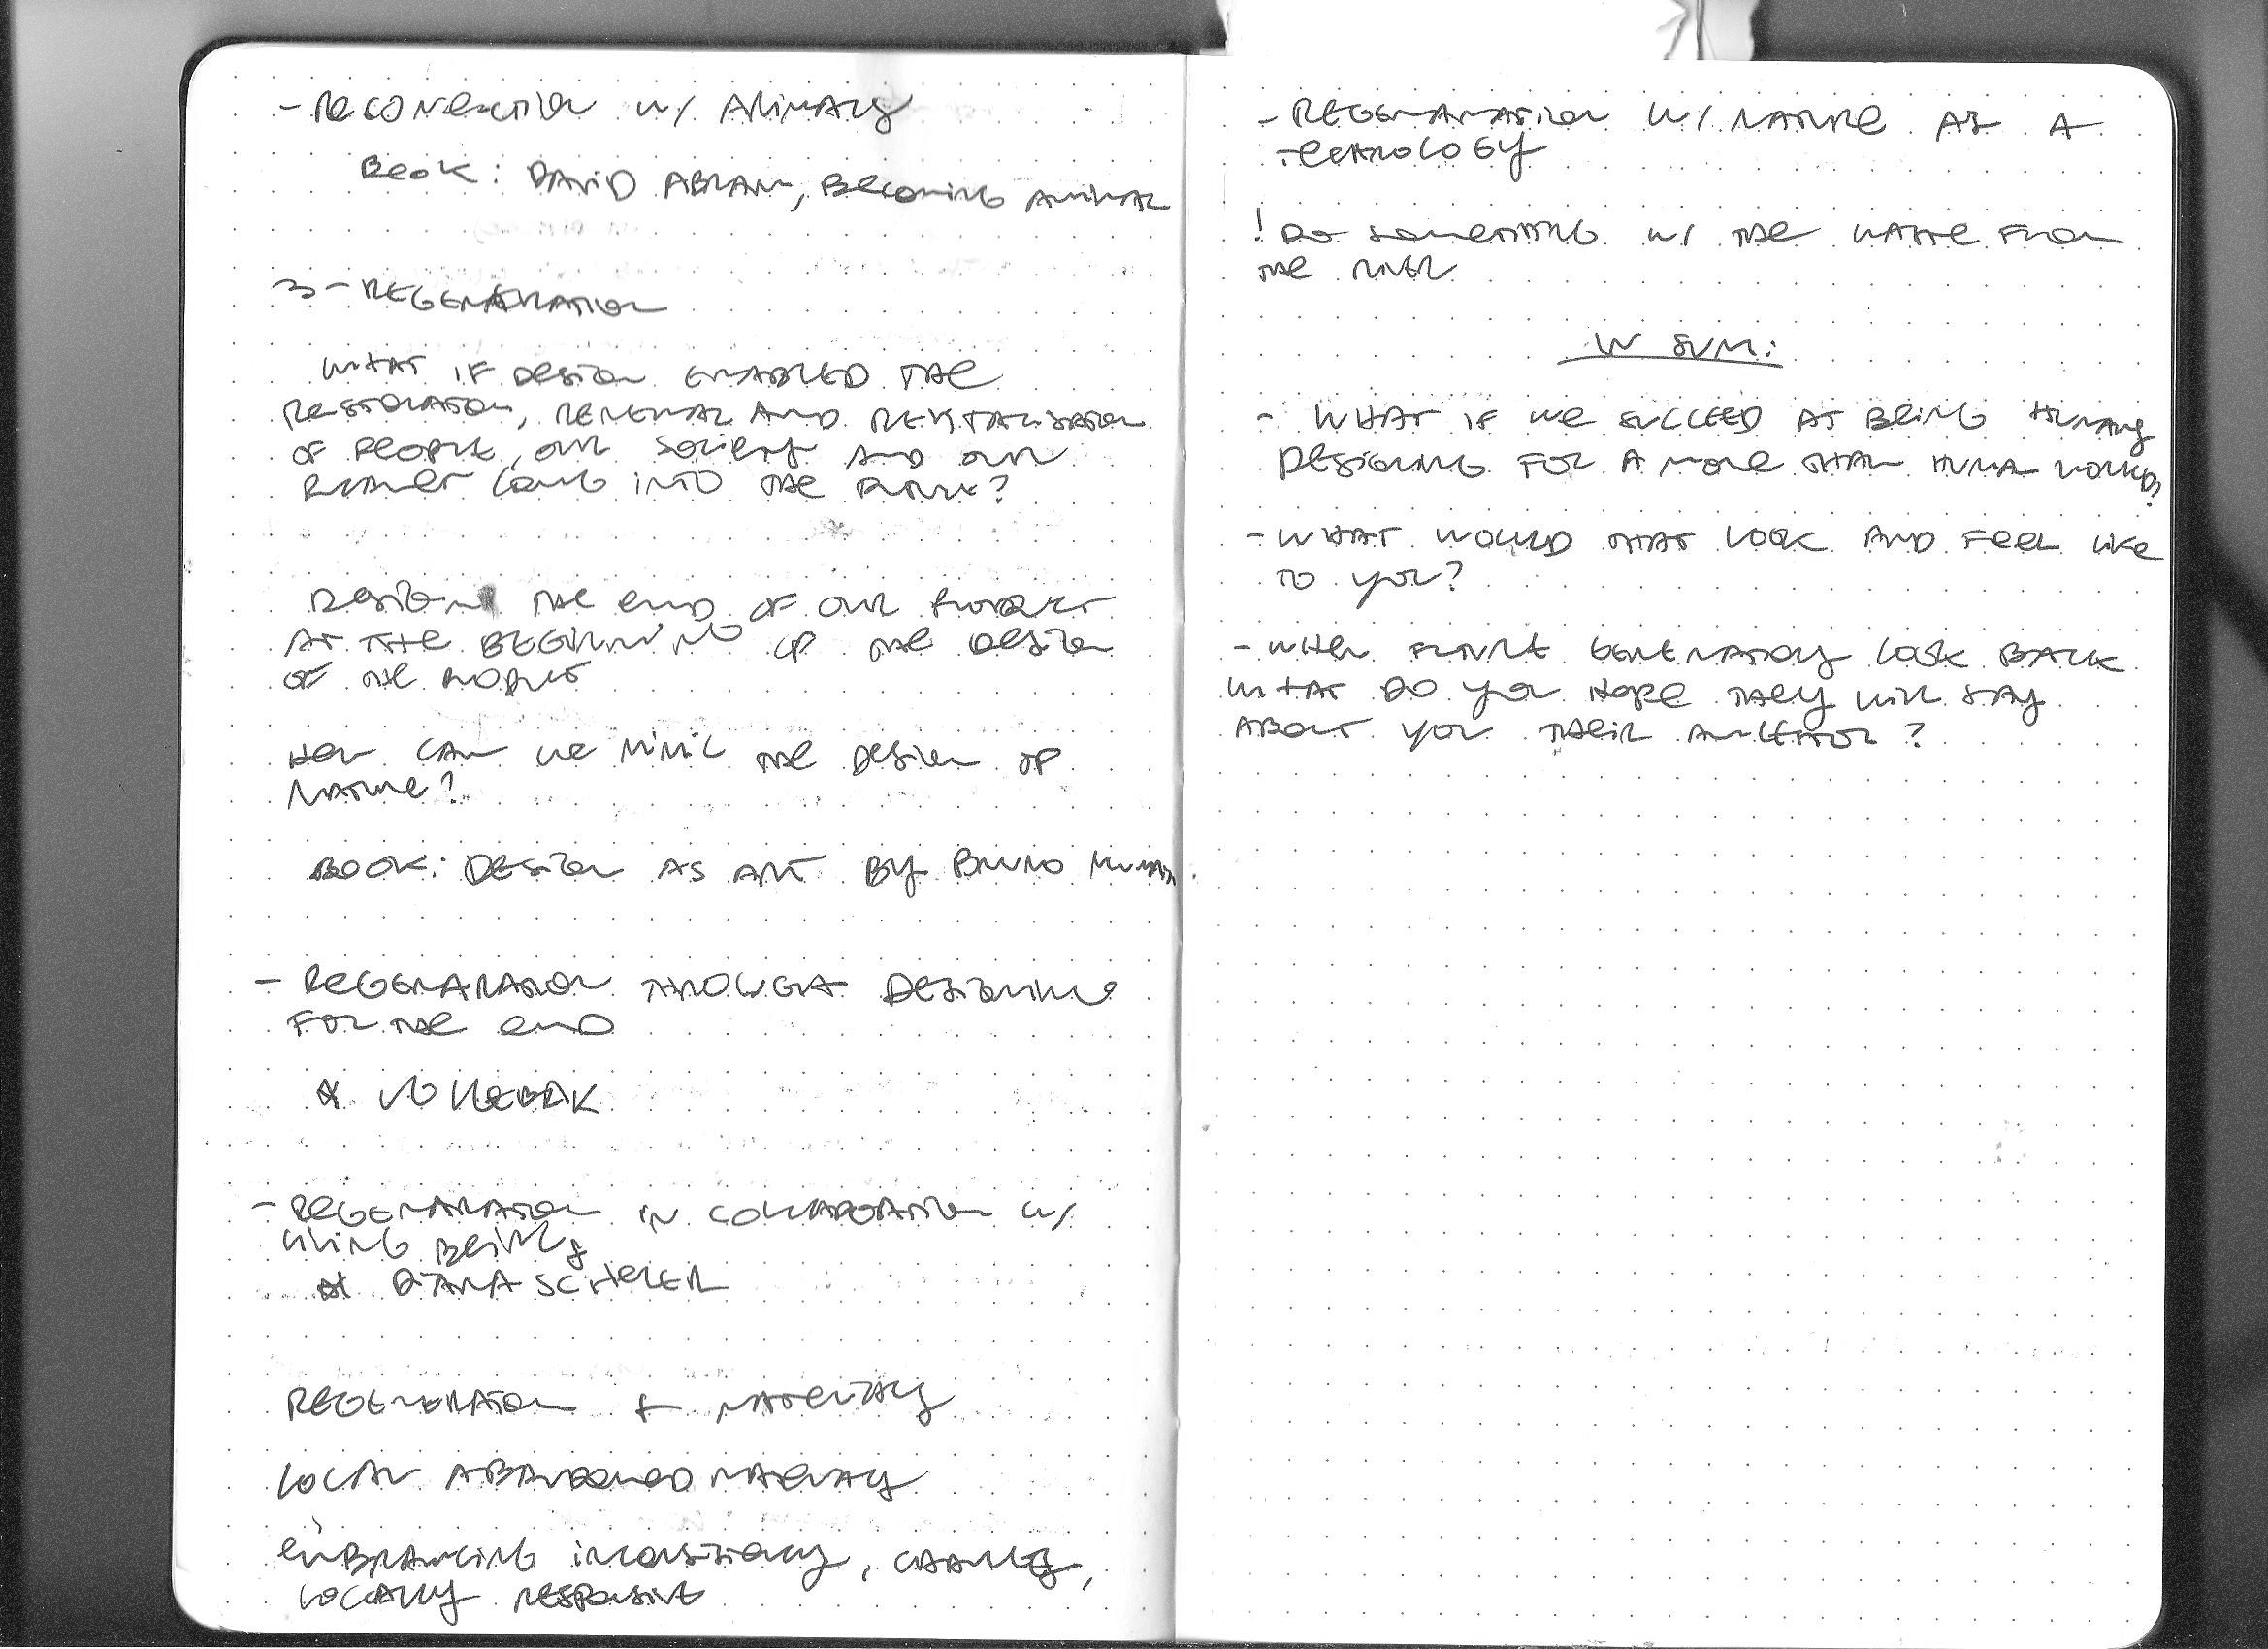 - RECONNECTION W/ ANIMALS
BOOK: DAVID ABRAM, BECOMING ANIMAL
3 - REGENERATION
WHAT IF DESIGN ENABLED THE
RESTORATION, RENEWAL AND REVITALISATION
OF PEOPLE, OUR SOCIETY AND OUR
PLANET LONG INTO THE FUTURE?
DESIGN THE END OF OUR PRODUCT
AT THE BEGINNING OF THE DESIGN
OF THE PRODUCT
HOW CAN WE MIMIC THE DESIGN OF
NATURE?
BOOK: DESIGN AS ART BY BRUNO MUNARI
- REGENERATION THROUGH DESIGNING
FOR THE END
* VOLLEBAK
- REGENERATION IN COLLABORATION W/
LIVING BEINGS
* DIANA SCHERER
REGENERATION + MATERIALS
LOCAL ABANDONED MATERIALS
EMBRACING INCONSISTENCY, CHANGES,
LOCALLY RESPONSIVE
- REGENERATION W/ NATURE AS A
TECHNOLOGY
! DO SOMETHING W/ THE WASTE FROM
THE RIVER
IN SUM:
- WHAT IF WE SUCCEED AT BEING HUMANS
DESIGNING FOR A MORE THAN HUMAN WORLD?
- WHAT WOULD THAT LOOK AND FEEL LIKE
TO YOU?
- WHEN FUTURE GENERATIONS LOOK BACK
WHAT DO YOU HOPE THEY WILL SAY
ABOUT YOU THEIR ANCESTOR?